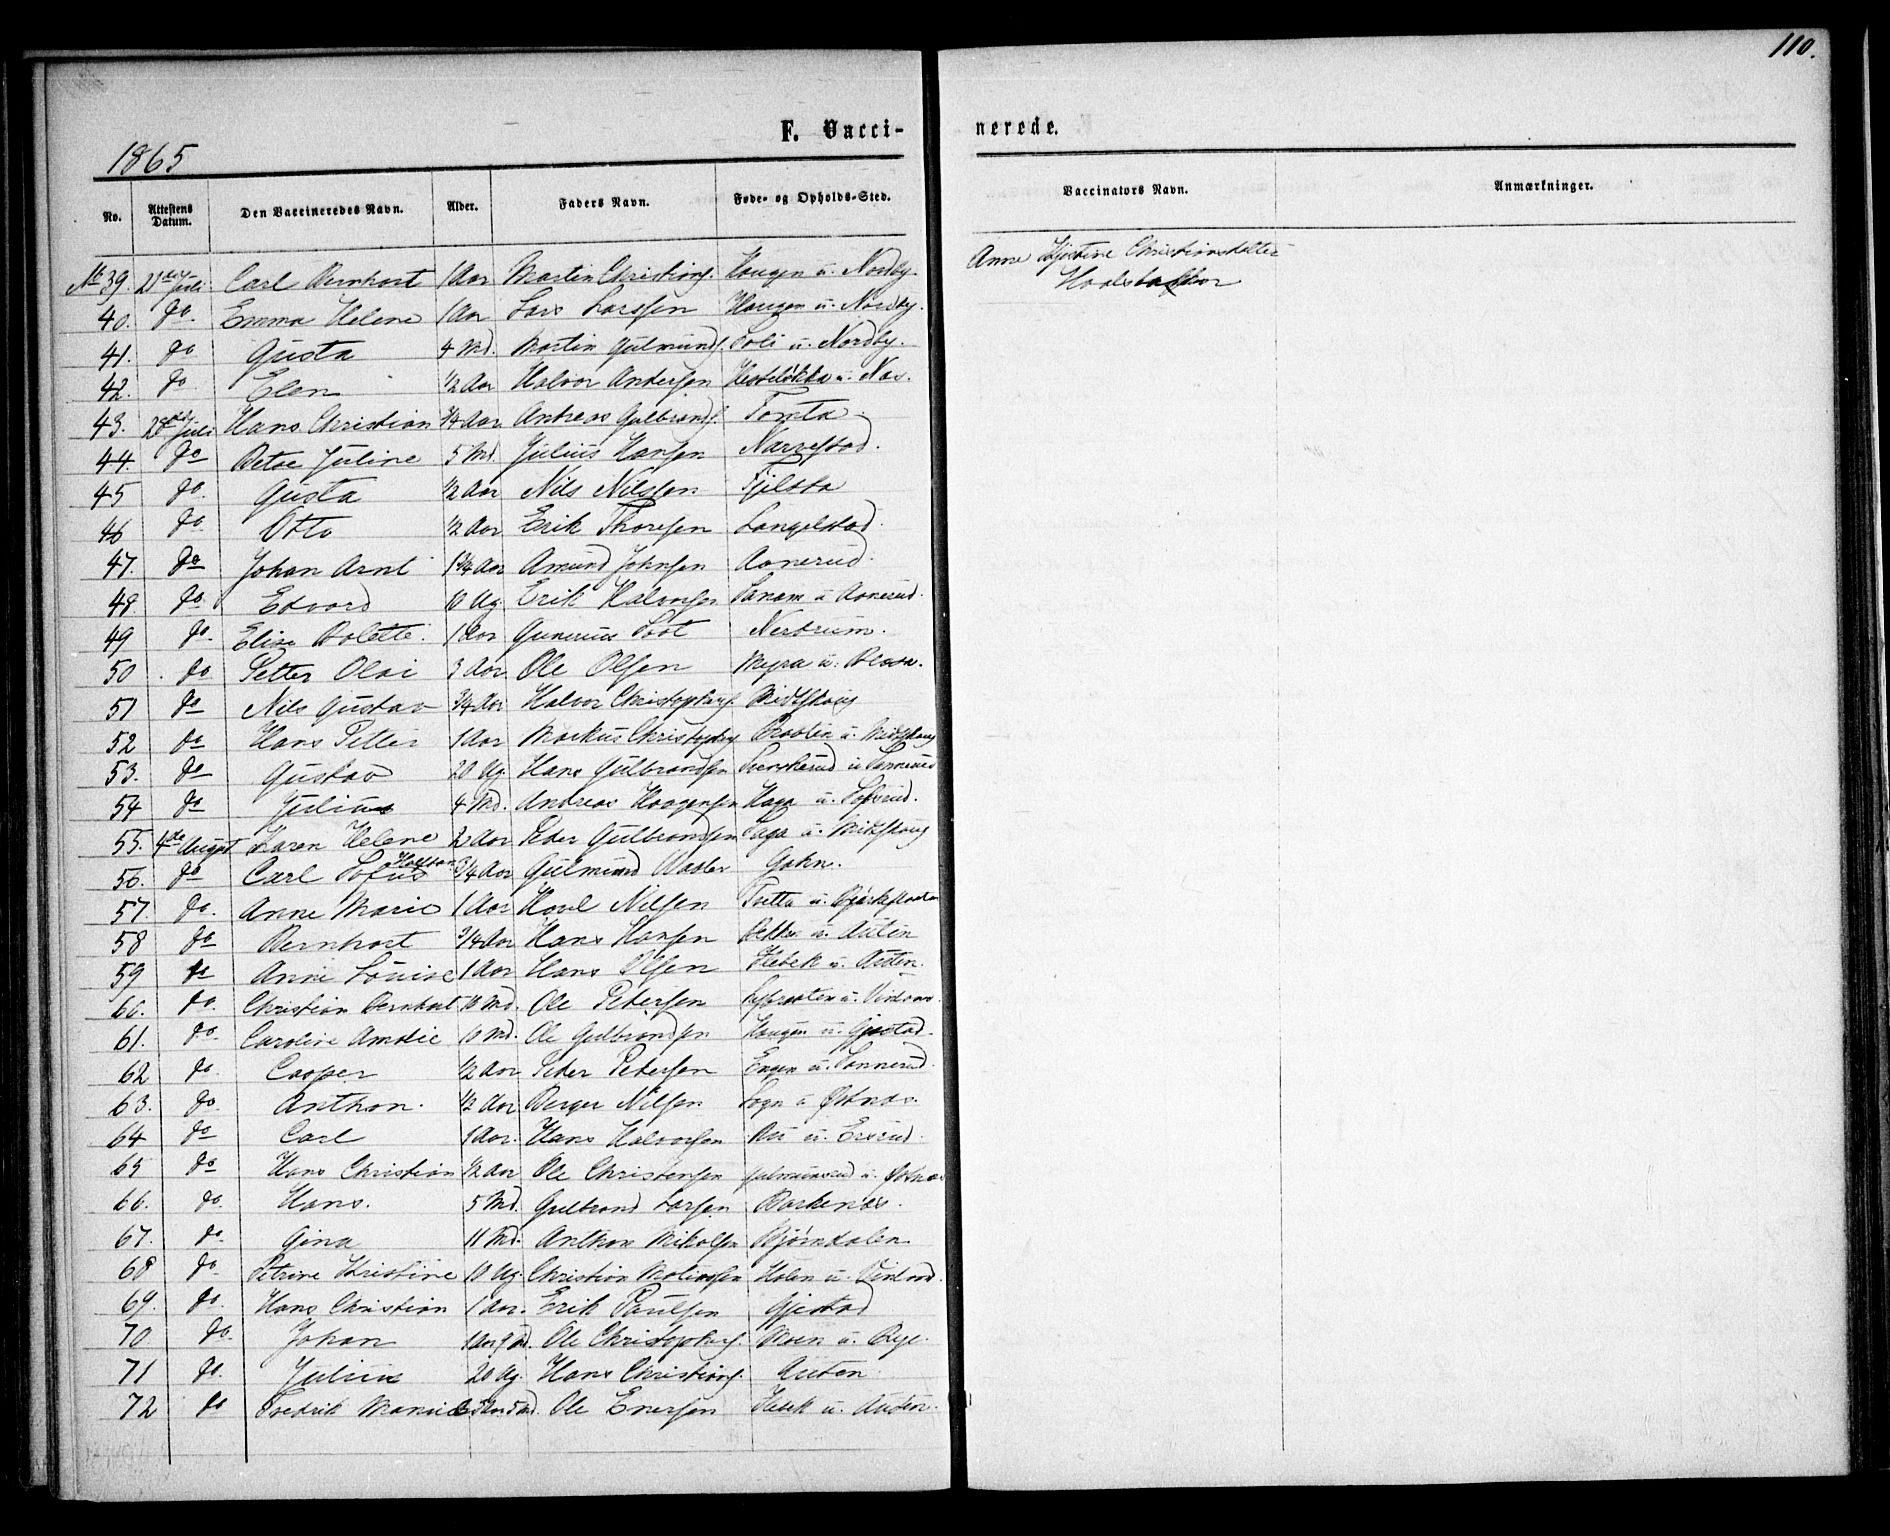 110.
F. Vacci- nerede.
1865
No. Attestens Datum. Den Vaccineredes Navn. Alder. Faders Navn. Føde- og Opholds-Sted. Vaccinators Navn. Anmærkninger.
No 39. 21de Juli Carl Bernhart 1 Aar Martin Christians. Haugen u. Nordby. Anne Kjestine Christiansdatter
40. do. Emma Helene 1 Aar Lars Larssen Haugen u. Nordby.
41. do Gusta 4 Md. Martin Gulmunds. u. Nordby.
42. do. Elen ½ Aar Halvor Andersen Hesteløkka u. Næs.
43. 28de Juli Hans Christian ¾ Aar Andreas Gulbrands. Tomta
44. do Betoe Juline 5 Md. Julius Hansen Narrestad.
45 do. Gusta ½ Aar Nils Nilssen
46 do. Otto ½ Aar Erik Thoresen Langelstad
47. do Johan Arnt 1¾ Aar Amund Johnsen Aanerud.
48 do. Edvard 10 Ug. Erik Halvorsen u Aanerud.
49 do. Elise Bolette. 1 Aar Gunerius Nerbrum.
50. do Petter Olai 3 Aar Ole Olsen Myra u.
51 do Nils Gustav ¾ Aar Halvor Christophers. Midtskoug
52 do Hans Petter 1 Aar Markus Christophers. Braaten u. Midtskoug
53. do Gustav 20 Ug. Hans Gulbrandsen u
54 do Julius 4 Md. Andreas Haagensen Haga u.
55. 4de August Karen Helene 2 Aar Peder Gulbrandsen u.
56. do Carl Sofus ¾ Aar Gulmund
57. do. Anne Marie 1 Aar Nilsen u.
58 do Bernhart ¾ Aar Hans Hansen u. Auten
59 do Anne Louise 1 Aar Hans Olsen u. Auten.
60. do. Christian Bernhart 10 Md. Ole Petersen u.
61. do. Caroline Amalie 10 Md. Ole Gulbrandsen Haugen u. Gjestad.
62 do Casper ½ Aar Peder Petersen Engen u. Tonnerud.
63. do. Anthon. ½ Aar Berger Nilsen Sogn u Østnæs.
64 do Carl 1 Aar. Hans Halvorsen u. Ersrud.
65 do Hans Christian ½ Aar Ole Christensen u. Østnæs
66. do. Hans. 5 Md. Gulbrand Larsen Barkenæs.
67. do. Gina 11 Md. Anthon Mikalsen Bjørndalen
68 do. Petrine Kristine 10 Ug. Christian u.
69. do. Hans Christian 1 Aar. Erik Paulsen Gjestad
70 do. Johan 1 Aar 9 Md. Ole Christophers. Moen u.
71 do. Julius 20 Ug. Hans Christians. Auten.
72 do Fredrik Ole Enersen u. Auten.